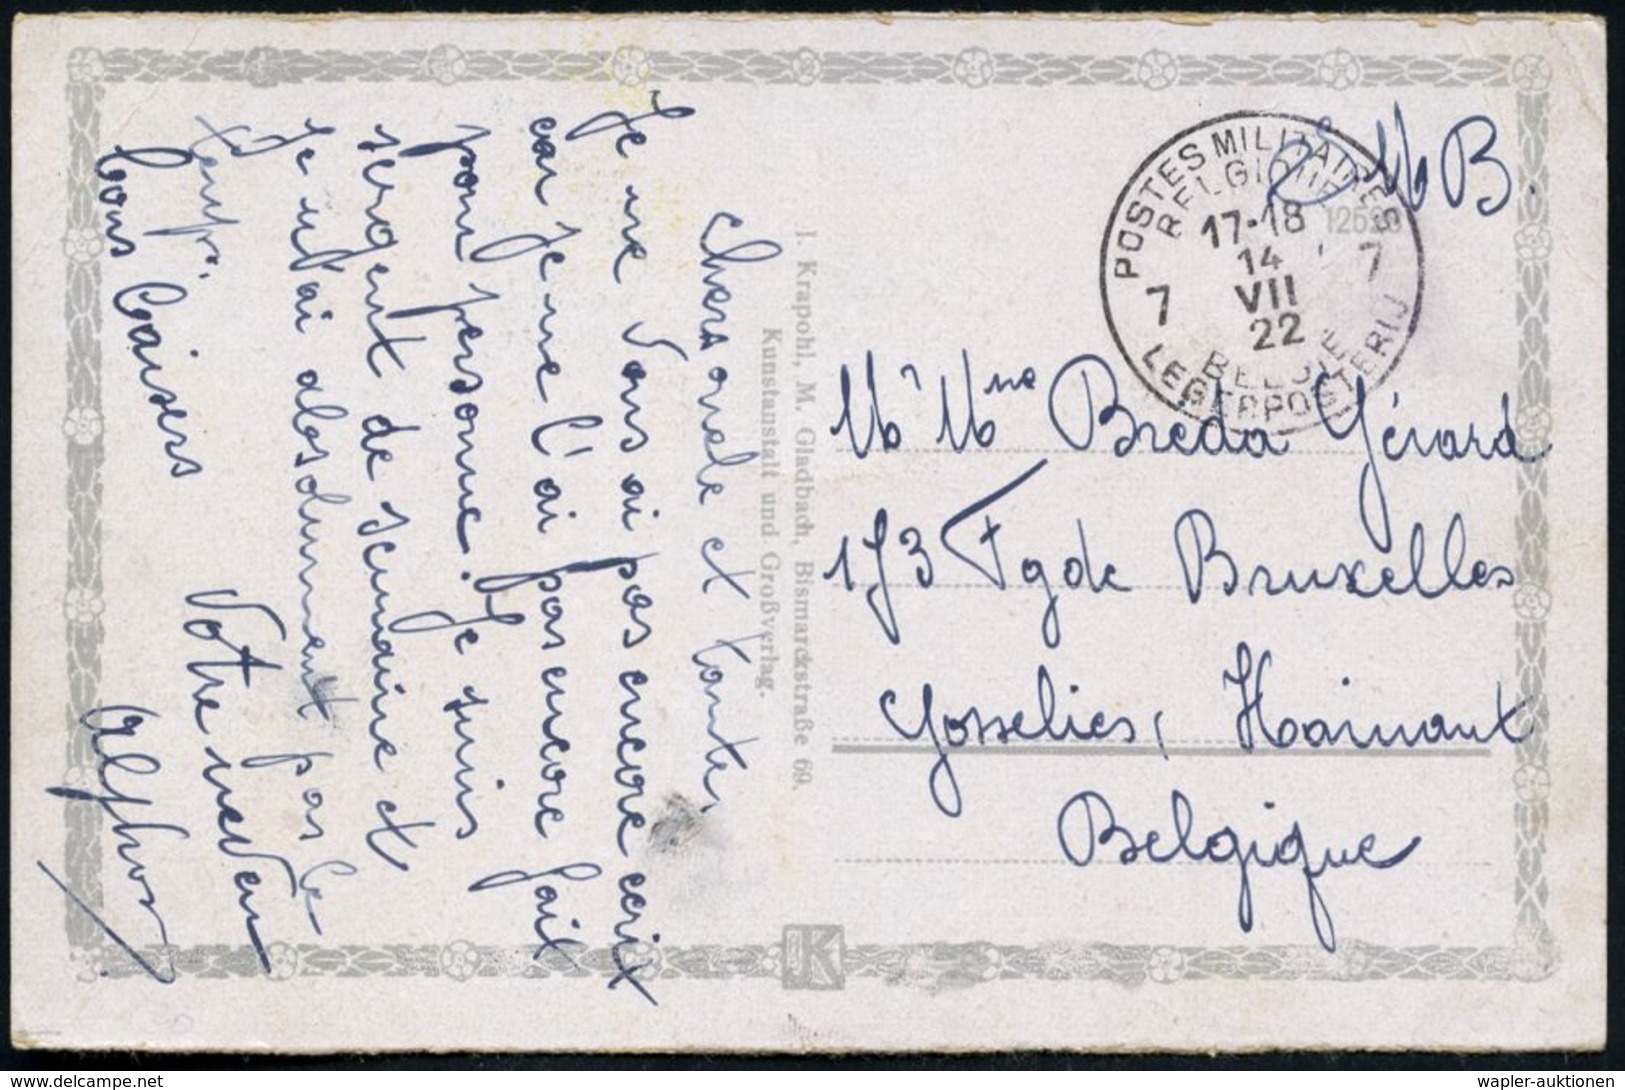 Chers oncle et tante,
Je ne vous ai pas encore ecrit
car je ne l'ai pas encore fait
pour personne. Je suis
sergent de semaine et
je n'ai absolument pas le
temps.
Bons Baisers
Votre neveu
Alphons
I. Krapohl, M. Gladbach, Bismarckstraße 69.
Kunstanstalt und Großverlag.
K
S. M B.
POSTES MILITAIRES
BELGIQUE
17-18
14
VII
22
7 7
BELGIE
LEGERPOSTERIJ
M Mme Breda Gérard
173 Fg de Bruxelles
Gosselies, Hainaut
Belgique
wapler-auktionen